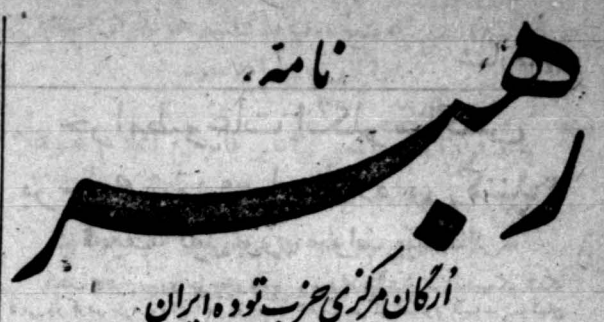 نامهٔ
رهبر
ارگان مرکزی حزب تودهٔ ایران